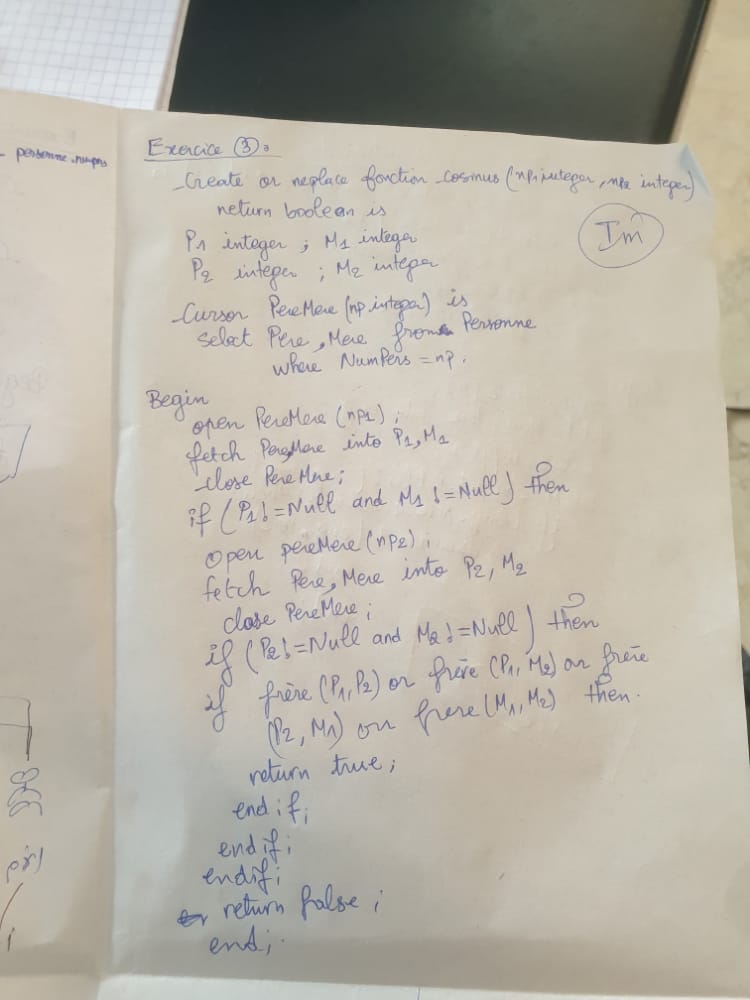 - personne.numpers
Exercice ③ :
- Create or replace fonction cosinus (np1 integer, np2 integer)
return boolean is
P1 integer ; M1 integer
P2 integer ; M2 integer
Im
- Cursor PereMere (np integer) is
select Pere, Mere from Personne
where NumPers = np.
Begin
open PereMere (np1) ;
fetch PereMere into P1, M1
close PereMere ;
if (P1 != Null and M1 != Null) then
open pereMere (np2) ;
fetch Pere, Mere into P2, M2
close PereMere ;
if (P2 != Null and M2 != Null) then
if frère (P1, P2) or frère (P1, M2) or frère
(P2, M1) or frere (M1, M2) then.
return true ;
end if ;
end if ;
endif ;
return false ;
end ;